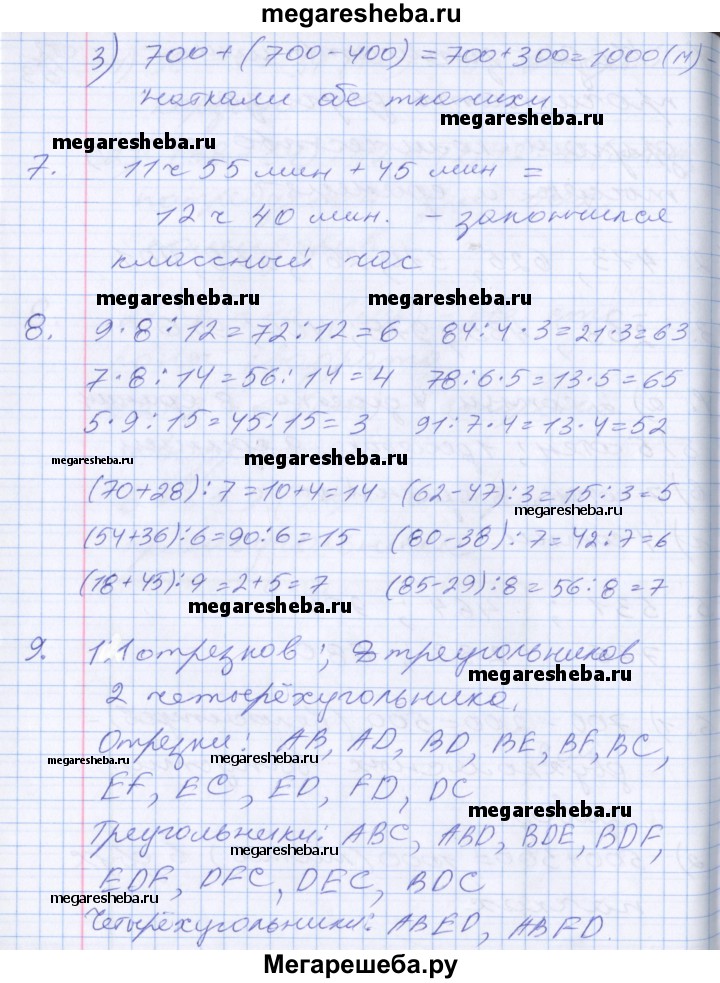 megaresheba.ru
3) 700 + (700 - 400) = 700 + 300 = 1000 (м) -
наткали обе ткачихи
megaresheba.ru
megaresheba.ru
7. 11 ч 55 мин + 45 мин =
12 ч 40 мин. - закончился
классный час
megaresheba.ru megaresheba.ru
8. 9 · 8 : 12 = 72 : 12 = 6 84 : 4 · 3 = 21 · 3 = 63
7 · 8 : 14 = 56 : 14 = 4 78 : 6 · 5 = 13 · 5 = 65
5 · 9 : 15 = 45 : 15 = 3 91 : 7 · 4 = 13 · 4 = 52
megaresheba.ru megaresheba.ru
(70 + 28) : 7 = 10 + 4 = 14 (62 - 47) : 3 = 15 : 3 = 5
megaresheba.ru
(54 + 36) : 6 = 90 : 6 = 15 (80 - 38) : 7 = 42 : 7 = 6
(18 + 45) : 9 = 2 + 5 = 7 (85 - 29) : 8 = 56 : 8 = 7
megaresheba.ru
9. 11 отрезков ; 8 треугольников
2 четырёхугольника.
megaresheba.ru
Отрезки: AB, AD, BD, BE, BF, BC,
megaresheba.ru megaresheba.ru
EF, EC, ED, FD, DC
megaresheba.ru
Треугольники: ABC, ABD, BDE, BDF,
megaresheba.ru
EDF, DFC, DEC, BDC
megaresheba.ru megaresheba.ru
Четырёхугольники: ABED, ABFD.
Мегарешеба.ру